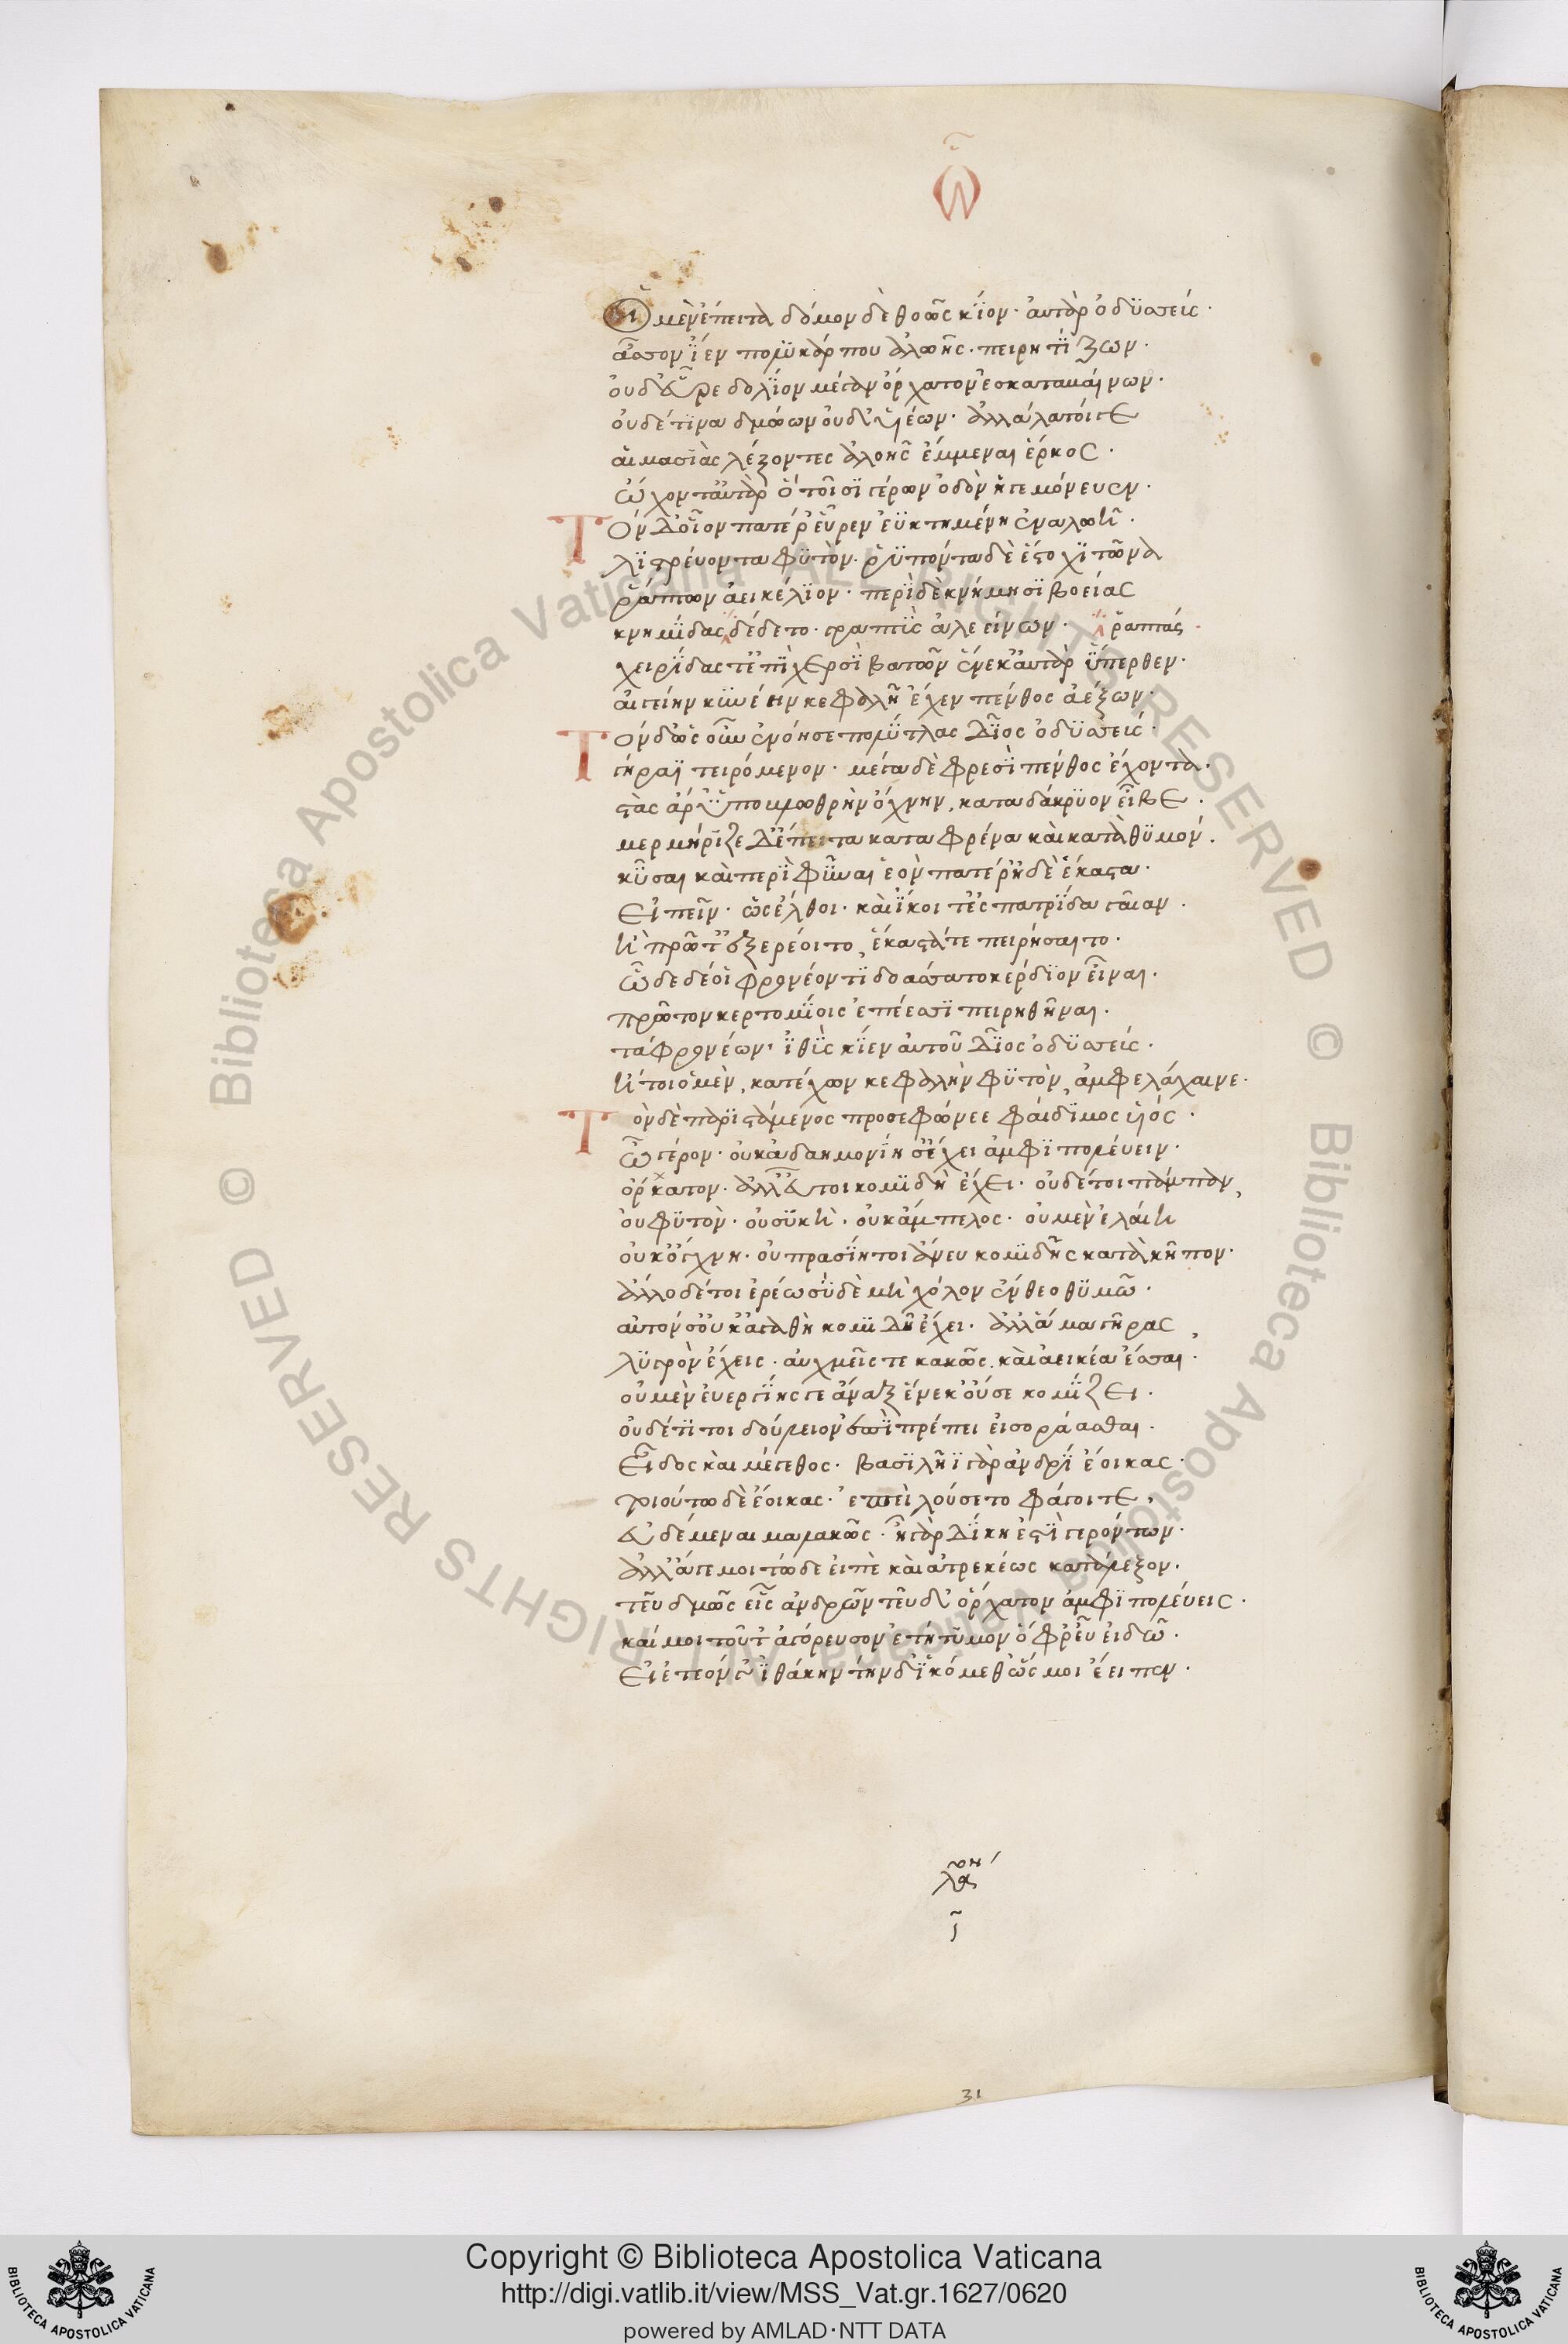 ω
Οἱ μὲν ἔπειτα δόμον δὲ θοῶς κίον· αὐτὰρ ὀδυσσεύς·
ἆσσον ἴεν πολυκάρπου ἀλωῆς· πειρητίζων·
οὐδ' εὗρε δολίον μέγαν ὄρχατον ἐσκαταβαίνων·
οὐδέ τινα δμώων οὐδ' υἱέων· ἀλλ' ἄρα τοί γε
αἱμασιὰς λέξοντες ἀλωῆς ἔμμεναι ἕρκος·
ὤχοντ' αὐτὰρ ὃ τοῖσι γέρων ὁδὸν ἡγεμόνευεν·
Τὸν δ' οἶον πατέρ' εὗρεν ἐϋκτιμένη ἐν ἀλωῇ·
λιστρεύοντα φυτόν· ῥυπόωντα δὲ ἕστο χιτῶνα
ῥάπτον ἀεικέλιον· περὶ δὲ κνήμησι βοείας
κνημίδας δέδετο· γραπτῦς ἀλεείνων· ῥαπτάς
χειρίδας τ' ἐπὶ χερσὶ βάτων ἕνεκ' αὐτὰρ ὕπερθεν·
αἰγείην κυνέην κεφαλῇ ἔχεν πένθος ἀέξων·
Τὸν δ' ὡς οὖν ἐνόησε πολύτλας δῖος ὀδυσσεύς·
γήραϊ τειρόμενον· μέγα δὲ φρεσὶ πένθος ἔχοντα·
στὰς ἄρ' ὑπο βλωθρὴν ὄχνην, κατα δάκρυον εἶβε·
μερμήριζε δ' ἔπειτα κατα φρένα καὶ κατὰ θυμόν·
κύσσαι καὶ περὶ φῦναι ἑὸν πατέρ' ἠδὲ ἕκαστα·
εἰπεῖν· ὡς ἔλθοι· καὶ ἵκοιτ' ἐς πατρίδα γαῖαν·
ἢ πρῶτ' ἐξερέοιτο, ἕκαστά τε πειρήσαιτο·
ὧδε δέ οἱ φρονέοντι δοάσσατο κέρδιον εἶναι·
πρῶτον κερτομίοις ἐπέεσσι πειρηθῆναι·
τὰ φρονέων, ἰθὺς κίεν αὐτοῦ δῖος ὀδυσσεύς·
ἤτοι ὁ μὲν, κατέχων κεφαλὴν φυτὸν, ἀμφελάχαινε·
Τὸν δὲ παριστάμενος προσεφώνεε φαίδιμος υἱός·
ὦ γέρον· οὐκ ἀδαημονίη σ' ἔχει ἀμφιπολεύειν·
ὄρχατον· ἀλλ' εὖ τοι κομιδὴ ἔχει· οὐδέ τοι πάμπαν,
οὐ φυτὸν· οὐ συκῆ· οὐκ ἄμπελος· οὐ μὲν ἐλαίη
οὐκ ὄγχνη· οὐ πρασίη τοι ἄνευ κομιδῆς κατὰ κῆπον·
ἄλλο δέ τοι ἐρέω σὺ δὲ μὴ χόλον ἔνθεο θυμῶ·
αὐτόν σ' οὐκ ἀγαθὴ κομιδὴ ἔχει· ἀλλ' ἅμα γῆρας
λυγρὸν ἔχεις· αὐχμεῖς τε κακῶς, καὶ ἀεικέα ἕσσαι·
οὐ μὲν ἀεργίης γε ἄναξ ἕνεκ' οὔ σε κομίζει·
οὐδέ τί τοι δούλειον ἐπιπρέπει εἰσοράασθαι·
εἶδος καὶ μέγεθος· βασιλῆϊ γὰρ ἀνδρὶ ἔοικας·
τοιούτω δὲ ἔοικας· ἐπεὶ λούσετο φάγοι τε,
εὑδέμεναι μαλακῶς· ἡ γὰρ δίκη ἐστὶ γερόντων·
ἀλλ' ἄγε μοι τόδε εἰπὲ καὶ ἀτρεκέως κατάλεξον·
τεῦ δμὼς εἶς ἀνδρῶν τεῦ δ' ὄρχατον ἀμφιπολεύεις·
καί μοι τοῦτ' ἀγόρευσον ἐτήτυμον ὄφρ' εὖ εἰδῶ·
εἰ ἐτεόν γ' ἰθάκην τήνδ' ἱκόμεθ' ὥς μοι ἔειπεν·
31
Copyright © Biblioteca Apostolica Vaticana
http://digi.vatlib.it/view/MSS_Vat.gr.1627/0620
powered by AMLAD·NTT DATA